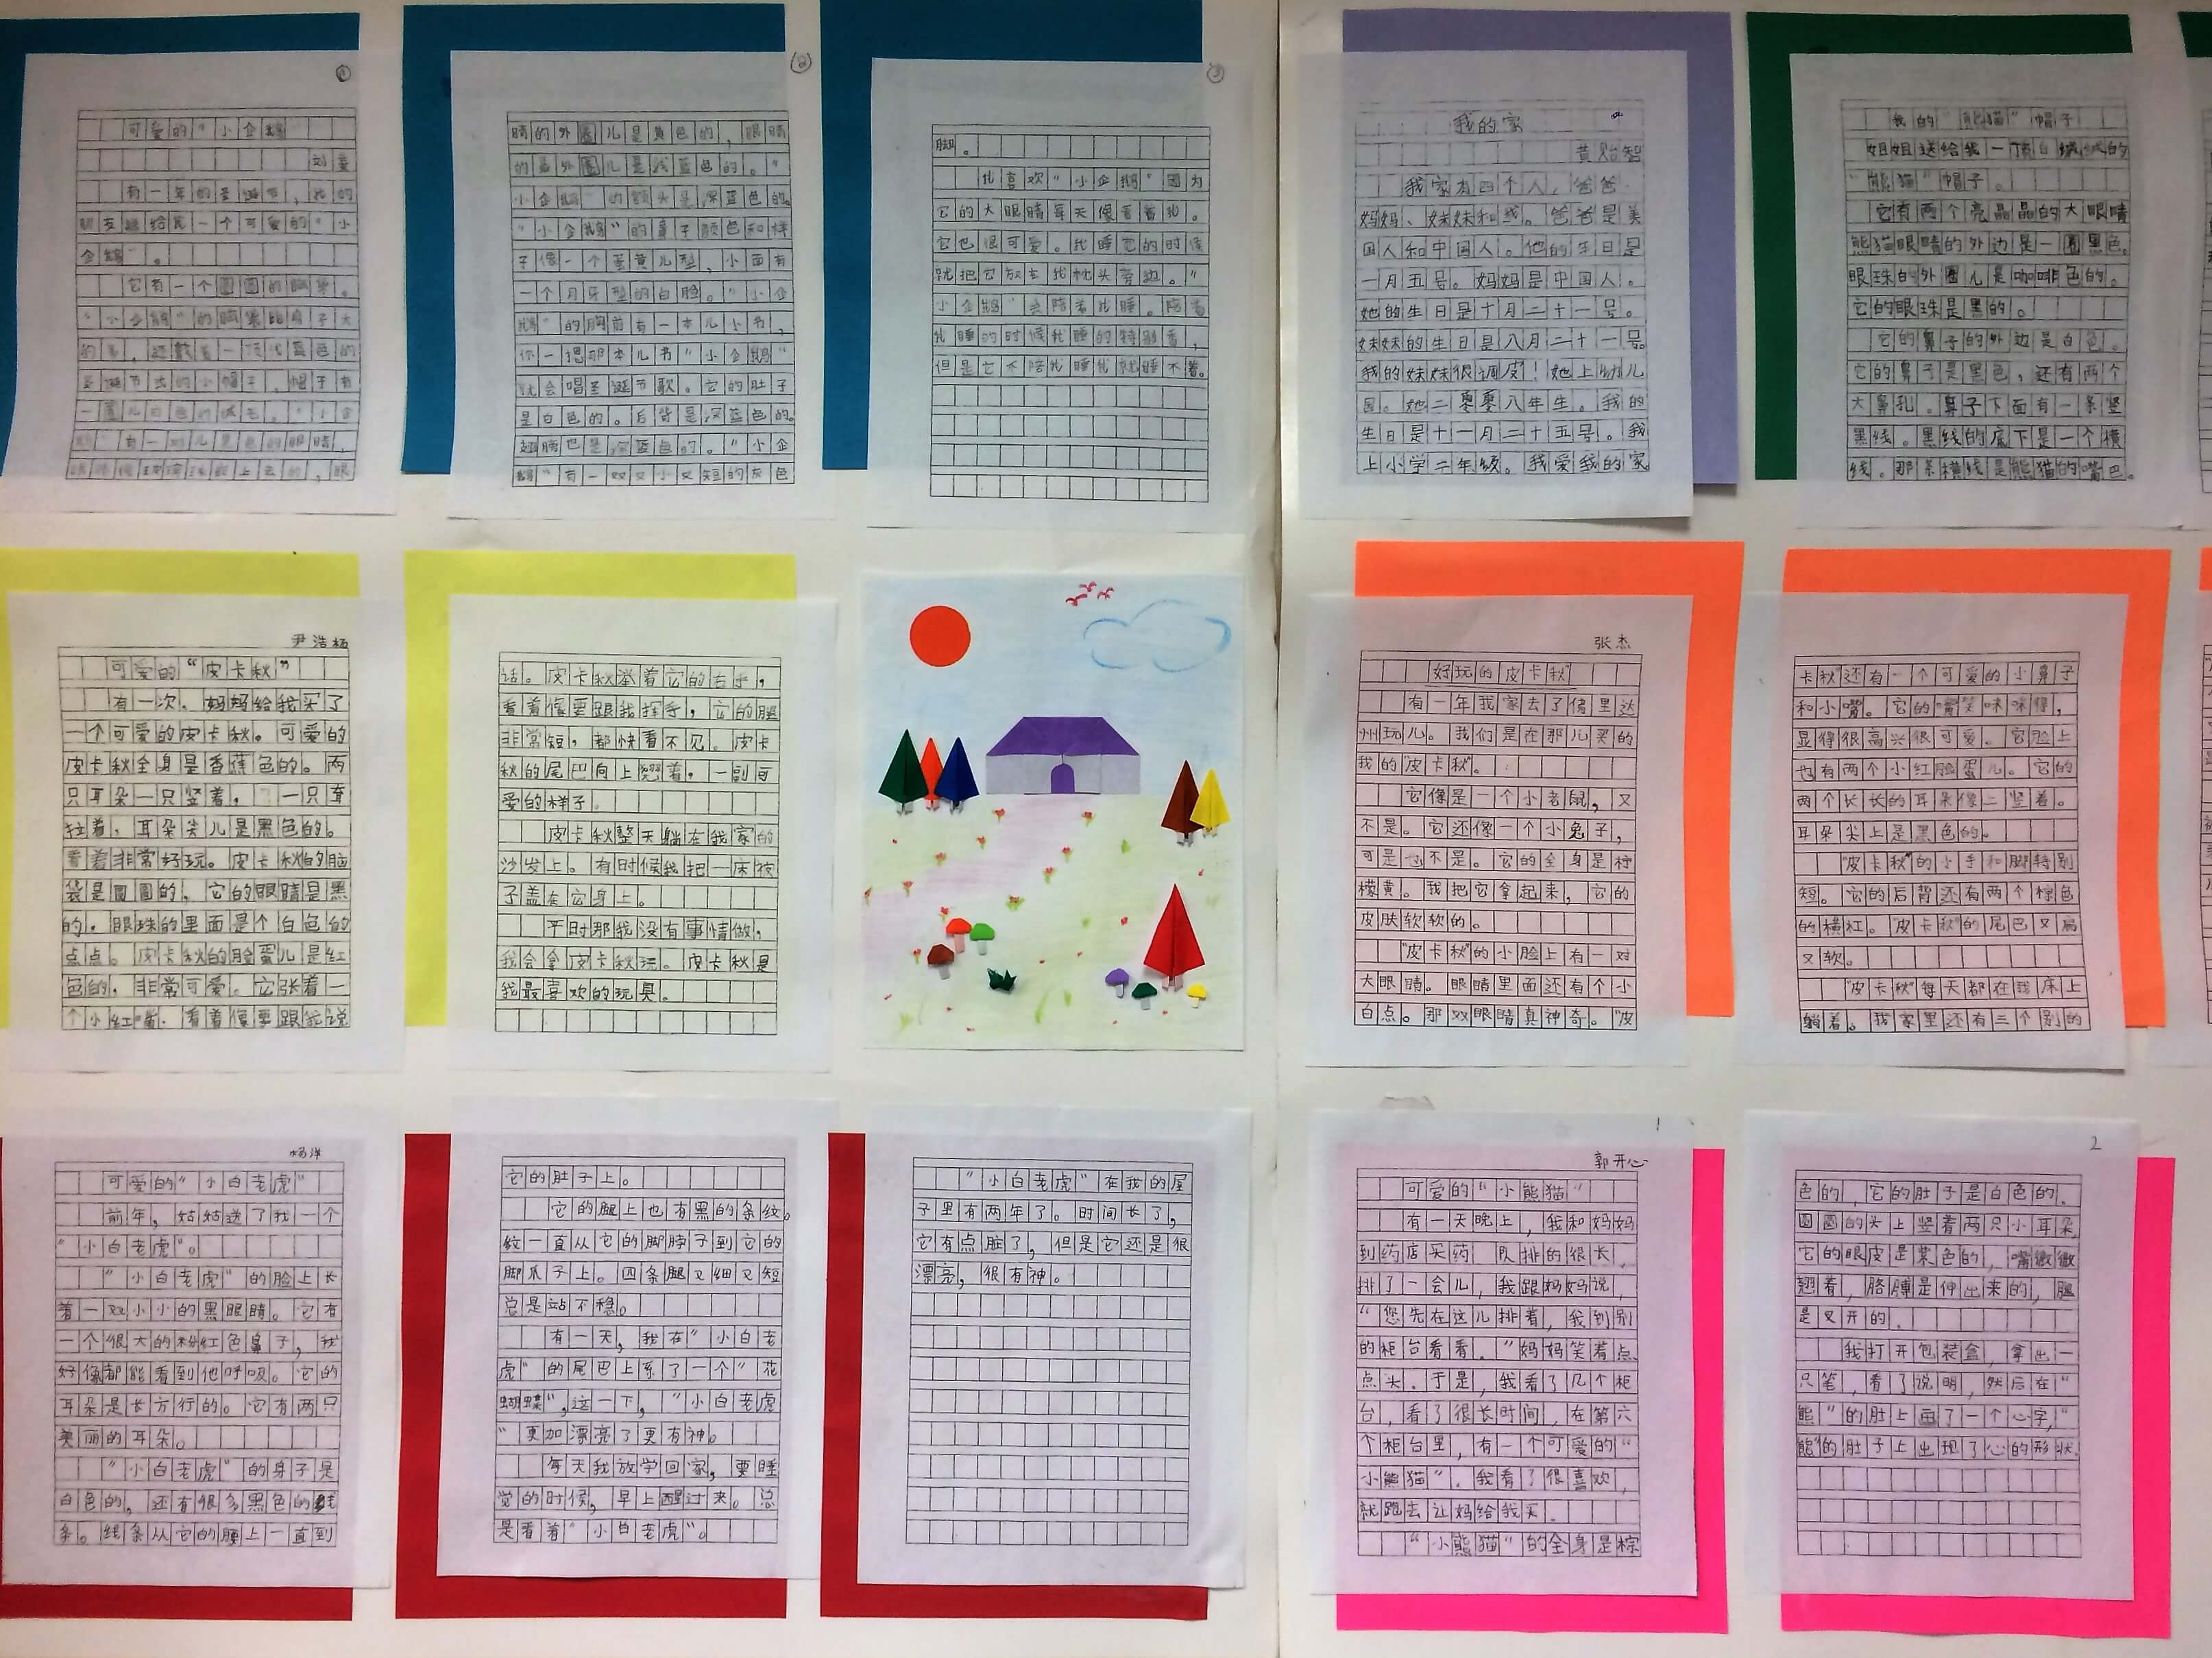 ①
可爱的“小企鹅”
刘
有一年的圣诞节，我的
朋友送给我一个可爱的“小
企鹅”。
它有一个圆圆的脑袋。
“小企鹅”的脑袋比身子大
的多，还戴着一顶浅蓝色的
圣诞节式的小帽子，帽子有
一圈儿白色的绒毛。“小企
鹅”有一对儿黑色的眼睛，
上去的，眼
②
睛的外圈儿是黄色的，眼睛
的最外圈儿是浅蓝色的。“
小企鹅”的额头是深蓝色的。
“小企鹅”的鼻子颜色和样
子像一个蛋黄儿型，小面有
一个月牙型的白脸。“小企
鹅”的胸前有一本儿小书，
你一摁那本儿书“小企鹅”
就会唱圣诞节歌。它的肚子
是白色的。后背是深蓝色的。
翅膀也是深蓝色的。“小企
鹅”有一双又小又短的灰色
③
脚。
我喜欢“小企鹅”因为
它的大眼睛每天像看着我。
它也很可爱。我睡觉的时候
就把它放在我枕头旁边。“
小企鹅”会陪着我睡。陪着
我睡的时候我睡的特别香，
但是它不陪我睡我就睡不着。
我的家
黄贻智
我家有四个人，爸爸、
妈妈、妹妹和我。爸爸是美
国人和中国人。他的生日是
一月五号。妈妈是中国人。
她的生日是十月二十一号。
妹妹的生日是八月二十一号。
我的妹妹很调皮！她上幼儿
园。她二零零八年生。我的
生日是十一月二十五号。我
上小学二年级。我爱我的家
我的“熊猫”帽子
姐姐送给我一顶白绒绒的
“熊猫”帽子。
它有两个亮晶晶的大眼睛
熊猫眼睛的外边是一圈黑色。
眼珠的外圈儿是咖啡色的。
它的眼珠是黑的。
它的鼻子的外边是白色。
它的鼻子是黑色，还有两个
大鼻孔。鼻子下面有一条竖
黑线。黑线的底下是一个横
线。那条横线是熊猫的嘴巴。
尹浩杨
可爱的“皮卡秋”
有一次，妈妈给我买了
一个可爱的皮卡秋。可爱的
皮卡秋全身是香蕉色的。两
只耳朵一只竖着，一只耷
拉着，耳朵尖儿是黑色的。
看着非常好玩。皮卡秋的脑
袋是圆圆的，它的眼睛是黑
的，眼珠的里面是个白色的
点点。皮卡秋的脸蛋儿是红
色的，非常可爱。它张着一
个小红嘴，看着像要跟我说
话。皮卡秋举着它的右手，
看着像要跟我挥手，它的腿
非常短，都快看不见。皮卡
秋的尾巴向上翘着，一副可
爱的样子。
皮卡秋整天躺在我家的
沙发上。有时候我把一床被
子盖在它身上。
平时那我没有事情做，
我会拿皮卡秋玩。皮卡秋是
我最喜欢的玩具。
张杰
好玩的皮卡秋
有一年我家去了佛里达
州玩儿。我们是在那儿买的
我的“皮卡秋”。
它像是一个小老鼠，又
不是。它还像一个小兔子，
可是也不是。它的全身是柠
檬黄。我把它拿起来，它的
皮肤软软的。
“皮卡秋”的小脸上有一对
大眼睛。眼睛里面还有个小
白点。那双眼睛真神奇。“皮
卡秋”还有一个可爱的小鼻子
和小嘴。它的嘴笑咪咪得，
显得很高兴很可爱。它脸上
也有两个小红脸蛋儿。它的
两个长长的耳朵像二竖着。
耳朵尖上是黑色的。
“皮卡秋”的小手和脚特别
短。它的后背还有两个棕色
的横杠。“皮卡秋”的尾巴又扁
又软。
“皮卡秋”每天都在我床上
躺着。我家里还有三个别的
杨洋
可爱的“小白老虎”
前年，姑姑送了我一个
“小白老虎”。
“小白老虎”的脸上长
着一双小小的黑眼睛。它有
一个很大的粉红色鼻子，我
好像都能看到他呼吸。它的
耳朵是长方行的。它有两只
美丽的耳朵。
“小白老虎”的身子是
白色的，还有很多黑色的线
条。线条从它的腰上一直到
它的肚子上。
它的腿上也有黑的条纹。
纹一直从它的脚脖子到它的
脚爪子上。四条腿又细又短
总是站不稳。
有一天，我在“小白老
虎”的尾巴上系了一个“花
蝴蝶”，这一下，“小白老虎
”更加漂亮了更有神。
每天我放学回家，要睡
觉的时候，早上醒过来。总
是看着“小白老虎”。
“小白老虎”在我的屋
子里有两年了。时间长了，
它有点脏了，但是它还是很
漂亮，很有神。
1
郭开心
可爱的“小熊猫”
有一天晚上，我和妈妈
到药店买药，队排的很长，
排了一会儿，我跟妈妈说，
“您先在这儿排着，我到别
的柜台看看。”妈妈笑着点
点头。于是，我看了几个柜
台，看了很长时间，在第六
个柜台里，有一个可爱的“
小熊猫”。我看了很喜欢，
就跑去让妈给我买。
“小熊猫”的全身是棕
2
色的，它的肚子是白色的。
圆圆的头上竖着两只小耳朵，
它的眼皮是紫色的，嘴微微
翘着，胳膊是伸出来的，腿
是叉开的。
我打开包装盒，拿出一
只笔，看了说明，然后在“
熊”的肚上画了一个心字，“
熊”的肚子上出现了心的形状。